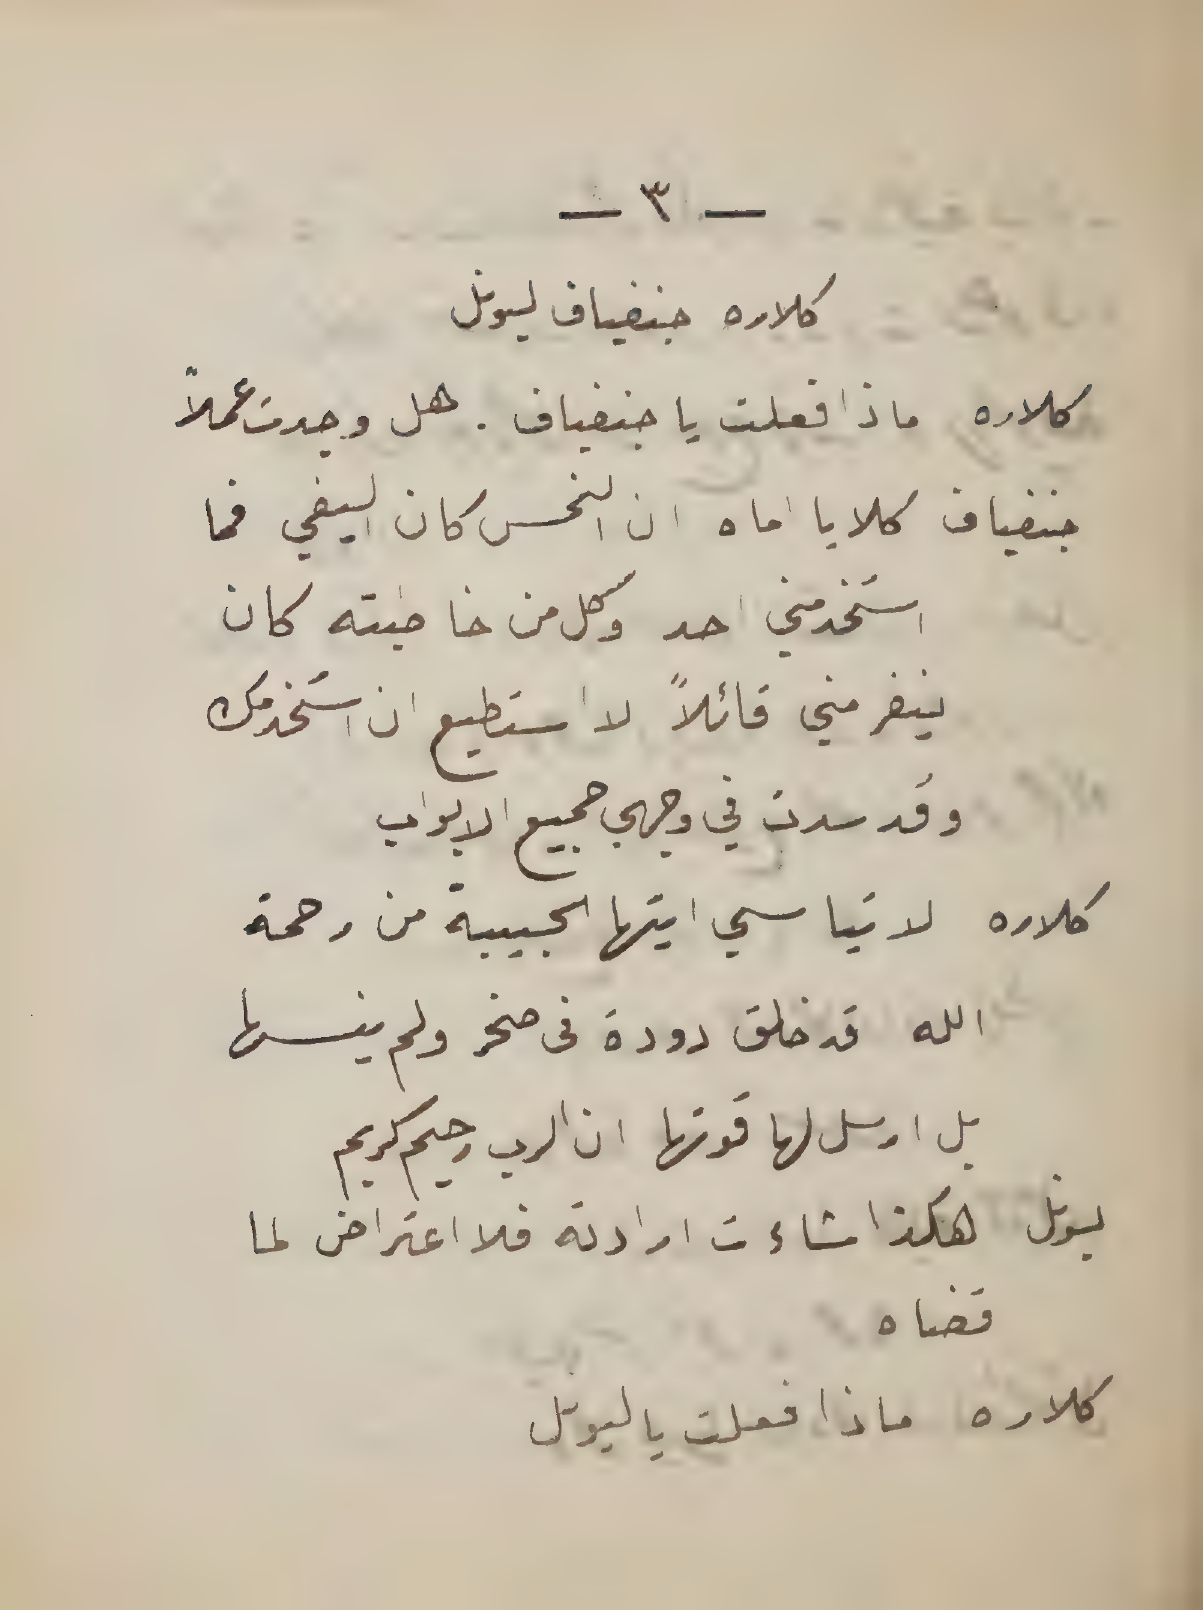 — ٣ —
كلاره جنفياف ليونل
كلاره ماذا فعلت يا جنفياف . هل وجدت عملاً
جنفياف كلا يا اماه ان النحس كان اليفي فما
استخدمني احد وكل من خاطبته كان
ينفر مني قائلاً لا استطيع ان استخدمك
وقد سدت في وجهي جميع الابواب
كلاره لا تياسي ايتها الحبيبة من رحمة
الله قد خلق دودة في صخر ولم ينسها
بل ارسل لها قوتها ان الرب رحيم كريم
ليونل هكذا شاءت ارادته فلا اعتراض لما
قضاه
كلاره ماذا فعلت يا ليونل